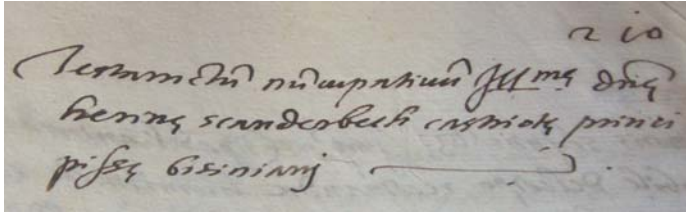 210
Testamentũ nũcupatiuũ Ill.mę dnę̃
herinę scanderbech castriotę princi
pissę bisiniani